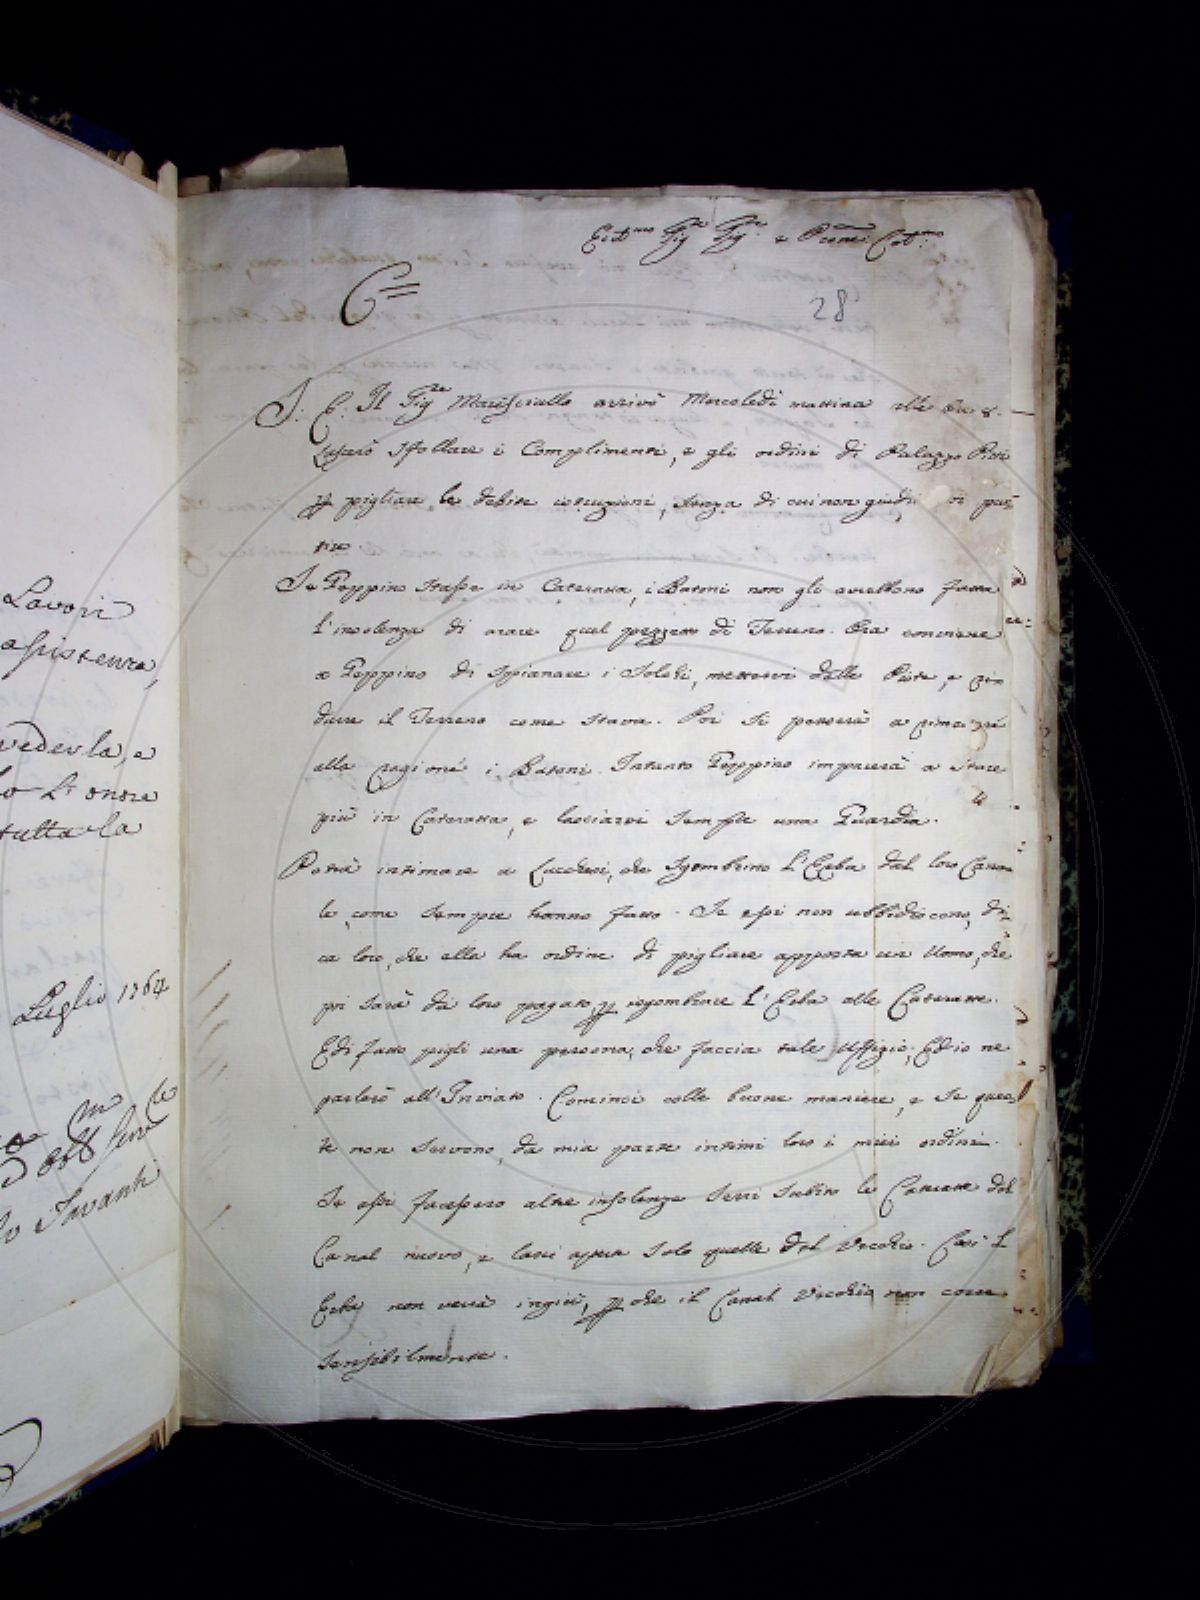 Sig.re Sig.re e Prone Col.mo
28
S. E. Il Sig.re Maresciallo arrivò Mercoledì mattina alle Ore 8.
Lascerò sfollare i Complimenti, e gli ordini di Palazzo Pitti
p pigliare le debite istruzioni, senza di cui non giudi di par
tire
Se Peppino stasse in Cateratta, i Batoni non gli avrebbono fatta
l'insolenza di arare quel pezzetto di Terreno. Ora conviene
a Peppino di spianare i Solchi, mettervi delle Piote, e rin
durre il Terreno come stava. Poi si penserà a
alla ragione i Batoni. Intanto Peppino imparerà a stare
più in Cateratta, e lasciarvi sempre una Guardia.
Potrà intimare a Lucchesi, che sgombrino l'Erba dal loro Cana
le, come sempre hanno fatto. Se essi non ubbidiscono, di
ca loro, che ella ha ordine di pigliare apposta un Uomo, che
poi sarà da loro pagato, p isgombrare l'Erba alle Cateratte.
E di fatto pigli una persona, che faccia tale Uffizio; Ed io ne
parlerò all'Inviato. Cominci colle buone maniere, e se ques
te non servono, da mia parte intimi loro i miei ordini.
Se essi facessero altre insolenze serri subito le Cateratte del
Canal nuovo, e lasci aperte solo quelle del Vecchio. Così l'
Erba non verrà ingiù, p che il Canal Vecchio non corre
sensibilmente.
Lavori
assistenza,
vederla, e
lo L'onore
tutta la
Luglio 1764